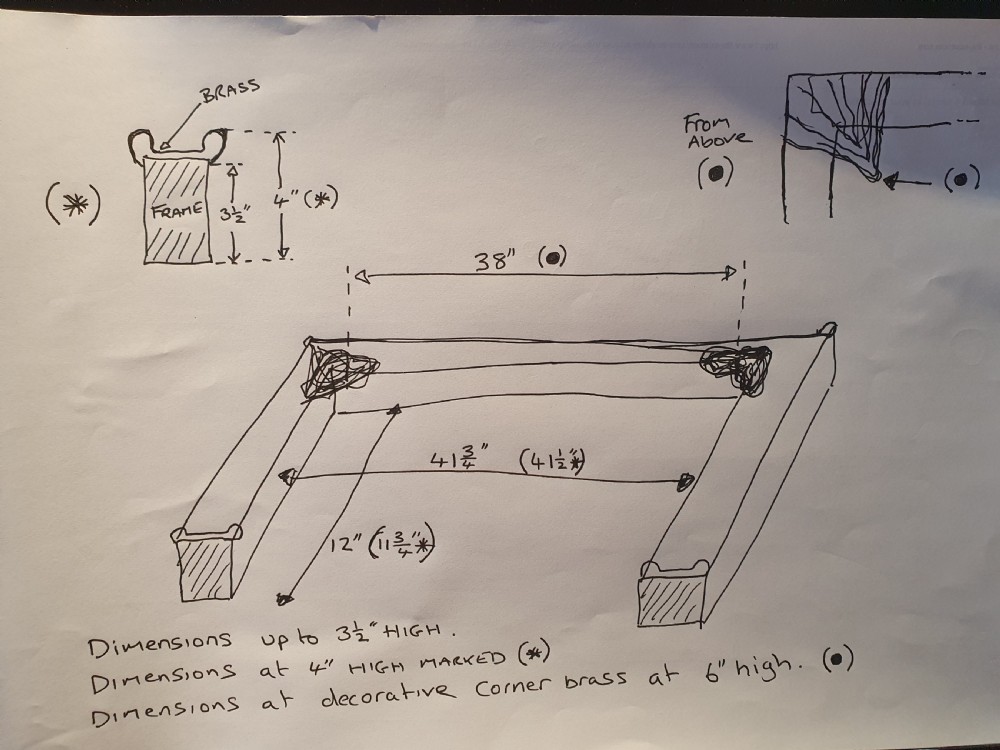 BRASS
(*)
FRAME
3½"
4" (*)
From
Above
(●)
(●)
38" (●)
41¾" (41½"*)
12" (11¾"*)
Dimensions up to 3½" HIGH.
Dimensions at 4" HIGH MARKED (*)
Dimensions at decorative corner brass at 6" high. (●)